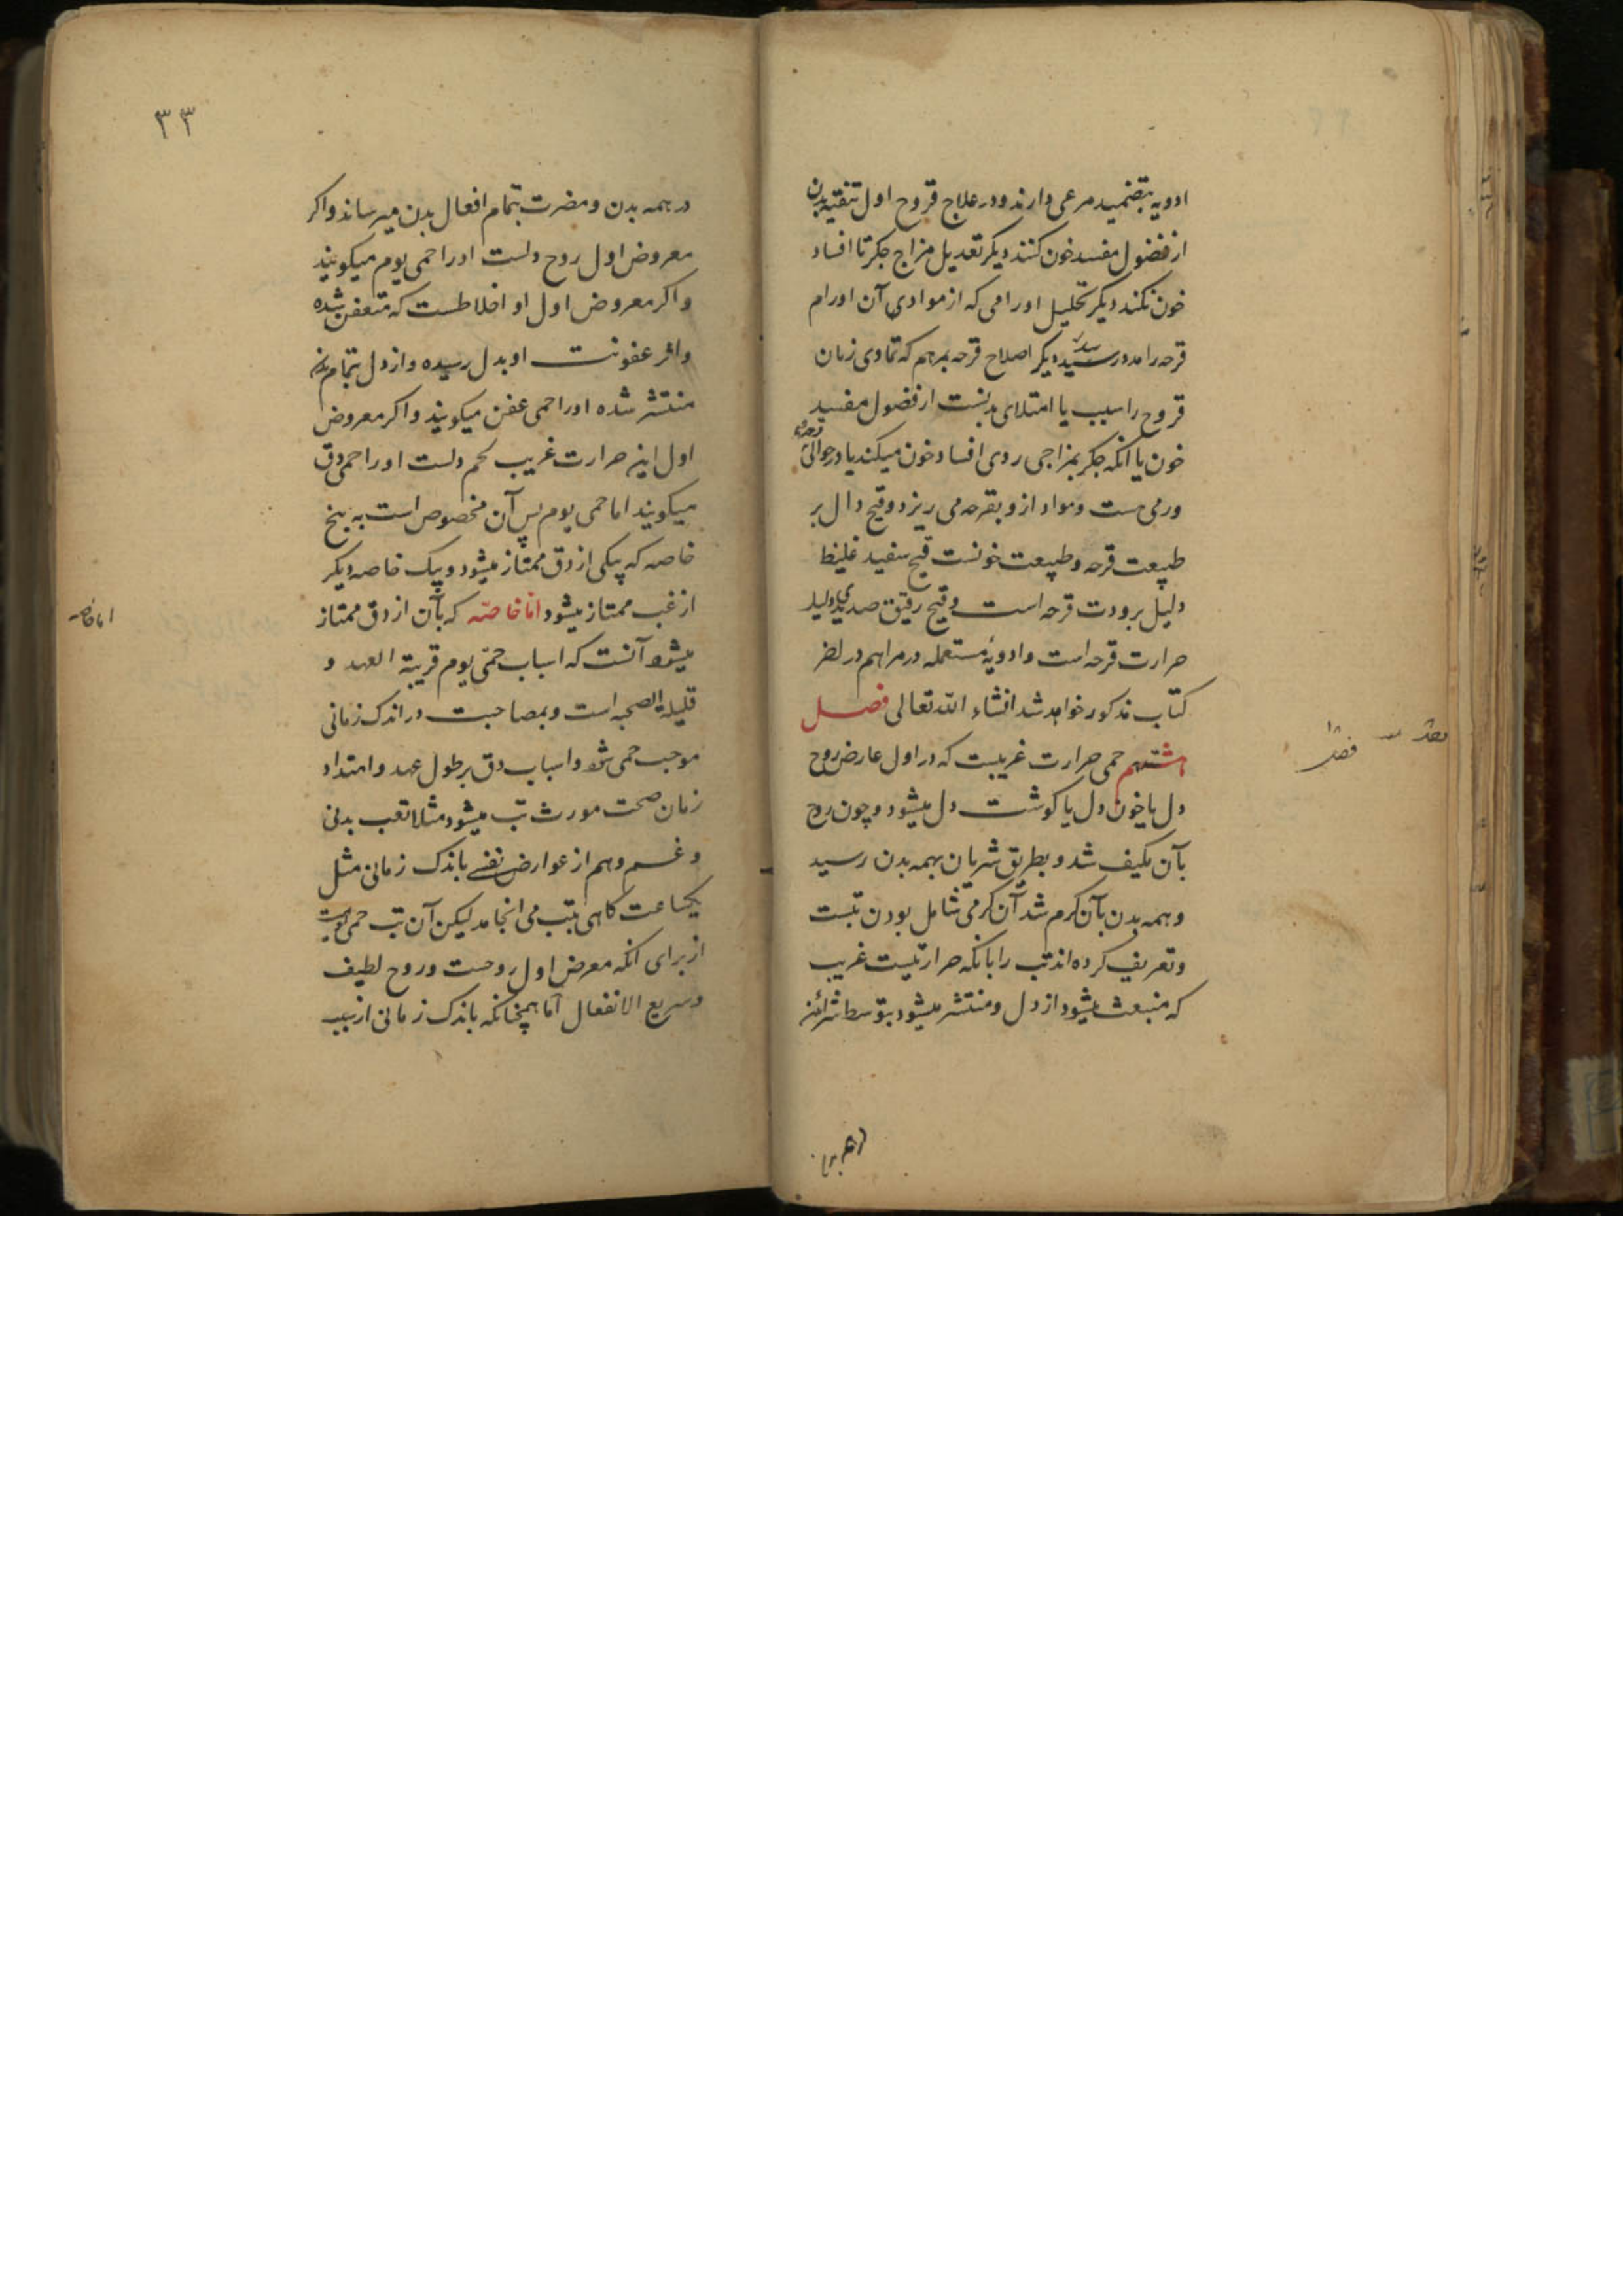 ادویه بتضمید مرعی دارند و در علاج قروح اول تنقیه بدن
از فضول مفسد خون کنند دیکر تعدیل مزاج جکر تا افساد
خون نکند دیکر تحلیل اورامی که از مواد آن اورام
قرحه را مدد رسد دیکر اصلاح قرحه بمرهم که تمادی زمان
قروح را سبب یا امتلای بدنست از فضول مفسد
خون یا آنکه جکر بمزاجی ردی افساد خون میکند یا در حوالی قرحه
ورمی هست و مواد ازو بقرحه می ریزد و قیح دال بر
طبیعت قرحه و طبیعت خونست قیح سفید غلیظ
دلیل برودت قرحه است و قیح رقیق صدیدی دلیل
حرارت قرحه است و ادویهٔ مستعمله در مراهم در آخر
کتاب مذکور خواهد شد انشاء الله تعالی فصل
هشتم حمی حرارت غریبست که در اول عارض روح
دل یا خون دل یا کوشت دل میشود و چون روح
بآن مکیف شد و بطریق شریان بهمه بدن رسید
و همه بدن بآن کرم شد آن کرمی شامل بودن تبست
و تعریف کرده اند تب را بانکه حرارتیست غریب
که منبعث میشود از دل و منتشر میشود بتوسط شرائین
در همه بدن
۳۳
در همه بدن و مضرت بتمام افعال بدن میرساند و اکر
معروض اول روح دلست او را حمی یوم میکویند
و اکر معروض اول او اخلاطست که متعفن شده
و اثر عفونت او بدل رسیده و از دل بتمام بدن
منتشر شده او را حمی عفن میکویند و اکر معروض
اول این حرارت غریب لحم دلست او را حمی دق
میکویند اما حمی یوم پس آن مخصوص است به پنج
خاصه که بیکی از دق ممتاز میشود و بیک خاصه دیکر
از غب ممتاز میشود اما خاصه که بآن از دق ممتاز
اما خاصه
میشود آنست که اسباب حمی یوم قریبة العهد و
قلیلة الصحبه است و بمصاحبت در اندک زمانی
موجب حمی شود و اسباب دق بر طول عهد و امتداد
زمان صحت مورث تب میشود مثلا تعب بدنی
و غم و هم از عوارض نفسی باندک زمانی مثل
یکساعت کاهی بتب می انجامد لیکن آن تب حمی یومست
از برای آنکه معرض اول روحست و روح لطیف
و سریع الانفعال اما همچنانکه باندک زمانی از سبب